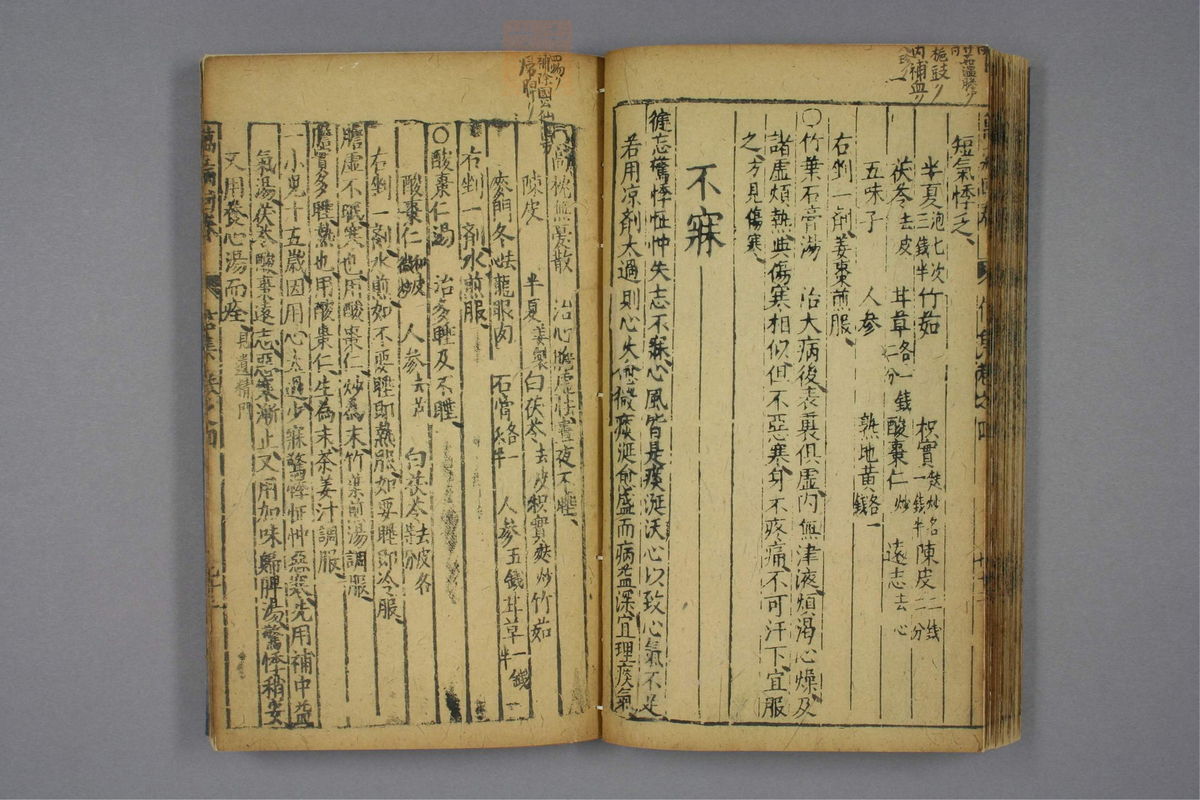 短氣悸之
半夏泡七次三錢半 竹茹 枳實麸炒各一錢半 陳皮二錢二分
茯苓去皮 甘草各一錢二分 酸棗仁炒 遠志去心
五味子 人參 熟地黃各一錢
右剉一劑姜棗煎服
○竹葉石膏湯 治大病後表裏俱虛內無津液煩渴心燥及
諸虛煩熱與傷寒相似但不惡寒身不疼痛不可汗下宜服
之方見傷寒
不寐
健忘驚悸怔忡失志不寐心風皆是痰涎沃心以致心氣不足
若用凉劑太過則心火愈微痰涎愈盛而病益深宜理痰氣
高枕無憂散 治心膽虛怯晝夜不睡
陳皮 半夏姜製 白茯苓去皮 枳實麸炒 竹茹
麥門冬 龍眼肉 石膏各一錢半 人參五錢 甘草一錢半
右剉一劑水煎服
○酸棗仁湯 治多睡及不睡
酸棗仁和皮微炒 人參去芦 白茯苓去皮各等分
右剉一劑水煎如不要睡即熱服如要睡即冷服
膽虛不眠寒也用酸棗仁炒為末竹葉煎湯調服
膽實多睡熱也用酸棗仁生為末茶姜汁調服
一小兒十五歲因用心太過少寐驚悸怔忡惡寒先用補中益
氣湯茯苓酸棗遠志惡寒漸止又用加味歸脾湯驚悸稍安
又用養心湯而痊見遺精門